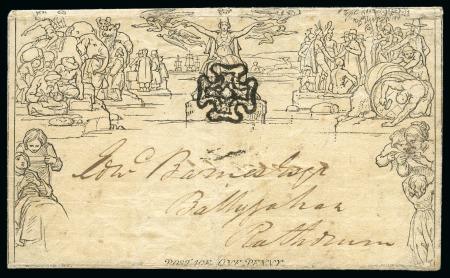 Edwd Barnes Esqr
Ballyqahan
Rathdrum
POSTAGE ONE PENNY.